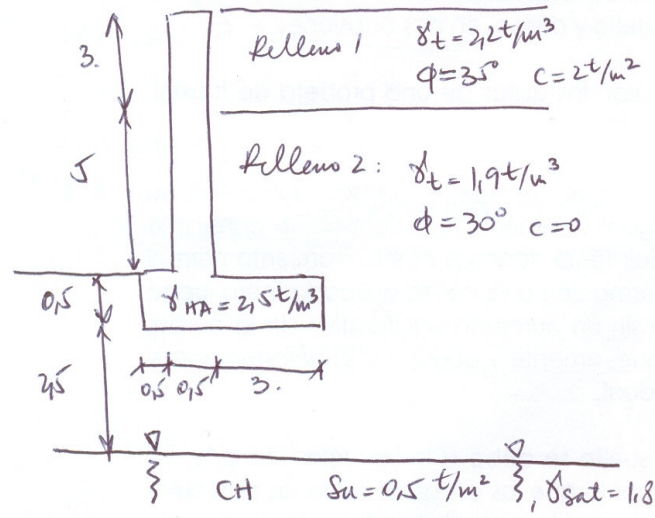 3.
Relleno 1 γt = 2,2 t/m³
φ = 35° c = 2 t/m²
5
Relleno 2 : γt = 1,9 t/m³
φ = 30° c = 0
0,5
γHA = 2,5 t/m³
2,5
0,5 0,5 3.
CH Su = 0,5 t/m² , γsat = 1.8